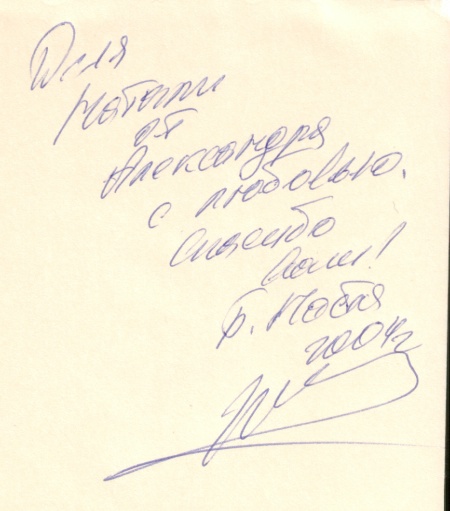 Для
Натали
от
Александра
с любовью.
Спасибо
Вам!
2004г